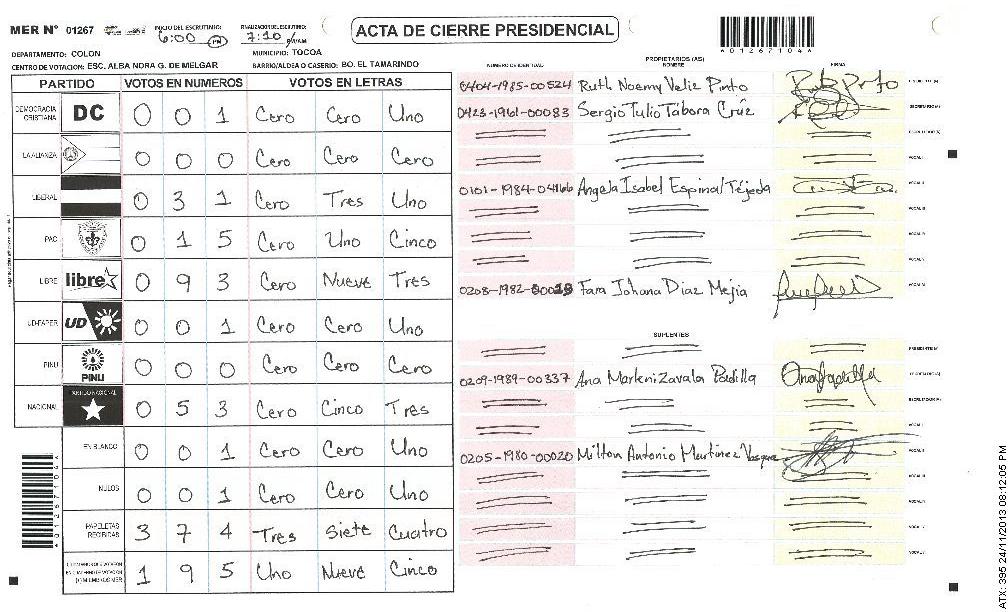 MER Nº 01267
INICIO DEL ESCRUTINIO: 6:00 PM
FINALIZACION DEL ESCRUTINIO: 7:10
ACTA DE CIERRE PRESIDENCIAL
DEPARTAMENTO: COLON
MUNICIPIO: TOCOA
CENTRO DE VOTACION: ESC. ALBA NORA G. DE MELGAR
BARRIO/ALDEA O CASERIO: BO. EL TAMARINDO
PARTIDO VOTOS EN NUMEROS VOTOS EN LETRAS
DEMOCRACIA CRISTIANA DC 0 0 1 Cero Cero Uno
LA ALIANZA 0 0 0 Cero Cero Cero
LIBERAL 0 3 1 Cero Tres Uno
PAC 0 1 5 Cero Uno Cinco
LIBRE libre 0 9 3 Cero Nueve Tres
UD-FAPER UD 0 0 1 Cero Cero Uno
PINU PINU 0 0 0 Cero Cero Cero
NACIONAL PARTIDO NACIONAL 0 5 3 Cero Cinco Tres
EN BLANCO 0 0 1 Cero Cero Uno
NULOS 0 0 1 Cero Cero Uno
PAPELETAS RECIBIDAS 3 7 4 Tres Siete Cuatro
1 9 5 Uno Nueve Cinco
PROPIETARIOS (AS)
NUMERO DE IDENTIDAD NOMBRE FIRMA
0404-1985-00524 Ruth Noemy Veliz Pinto
0423-1961-00083 Sergio Tulio Tabora Crúz
0101-1984-04166 Angela Isabel Espinal Tejeda
0208-1982-00019 Fara Johana Diaz Mejia
SUPLENTES
0209-1989-00337 Ana Marleni Zavala Padilla
0205-1980-00020 Milton Antonio Martinez Vasquez
A012671046
ATX: 395 24/11/2013 08:12:05 PM